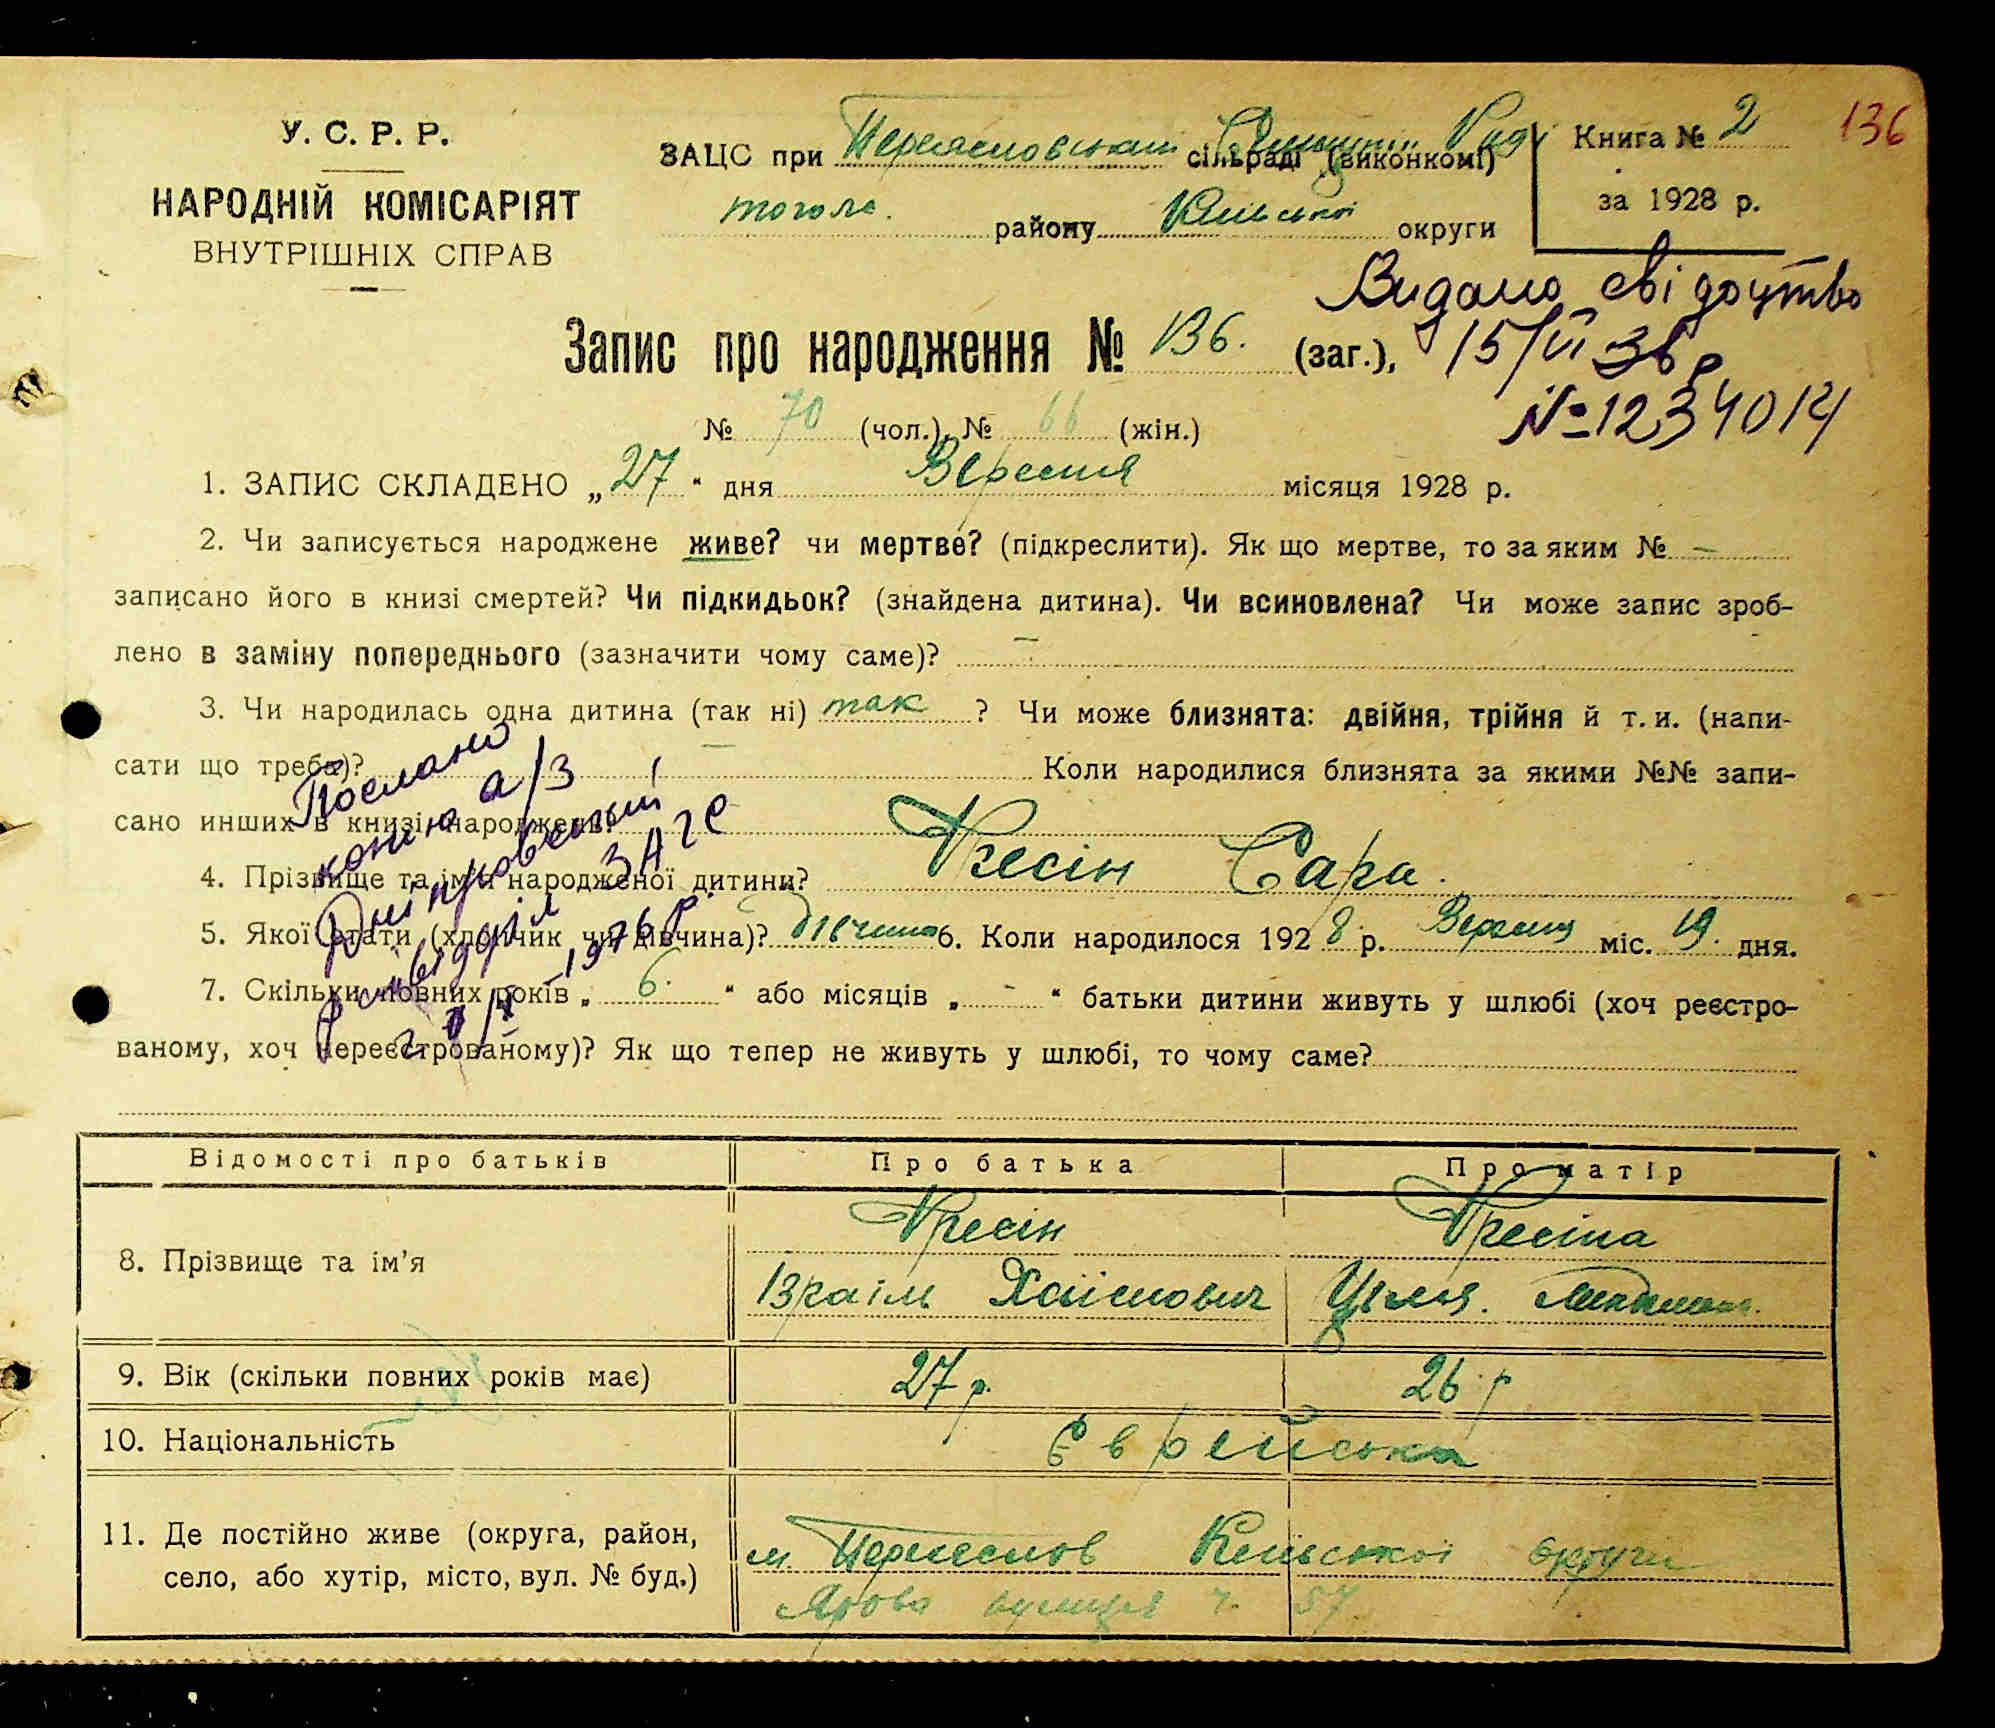 У. С. Р. Р.
НАРОДНІЙ КОМІСАРІЯТ
ВНУТРІШНІХ СПРАВ
ЗАЦС при Переяславський сільраді (виконкомі) Раді
тогож. району Київської округи
Книга № 2
за 1928 р.
136
Видано свідоцтво
15/VI 36 р
№ 1234014
Запис про народження № 136. (заг.),
№ 70 (чол.), № 66 (жін.)
1. ЗАПИС СКЛАДЕНО „27“ дня Вересня місяця 1928 р.
2. Чи записується народжене живе? чи мертве? (підкреслити). Як що мертве, то за яким № –
записано його в книзі смертей? Чи підкидьок? (знайдена дитина). Чи всиновлена? Чи може запис зроб-
лено в заміну попереднього (зазначити чому саме)? –
3. Чи народилась одна дитина (так ні) так ? Чи може близнята: двійня, трійня й т. и. (напи-
сати що треба)? – Коли народилися близнята за якими №№ запи-
сано инших в книзі народжень?
4. Прізвище та ім'я народженої дитини? Фресін Сара.
5. Якої статі (хлопчик чи дівчина)? дівчина 6. Коли народилося 1928 р. Вересня міс. 19. дня.
7. Скільки повних років „6.“ або місяців „-“ батьки дитини живуть у шлюбі (хоч реєстро-
ваному, хоч нереєстрованому)? Як що тепер не живуть у шлюбі, то чому саме?
Послано
копію а/з
Дніпровський
відділ ЗАГС
1976 р.
Відомості про батьків
Про батька
Про матір
8. Прізвище та ім'я
Фресін
Фресіна
Ізраїль Хаїмович
Циля.
9. Вік (скільки повних років має)
27 р.
26 р
10. Національність
Єврейська
11. Де постійно живе (округа, район,
село, або хутір, місто, вул. № буд.)
м. Переяслов Київської округи
вулиця ч. 57